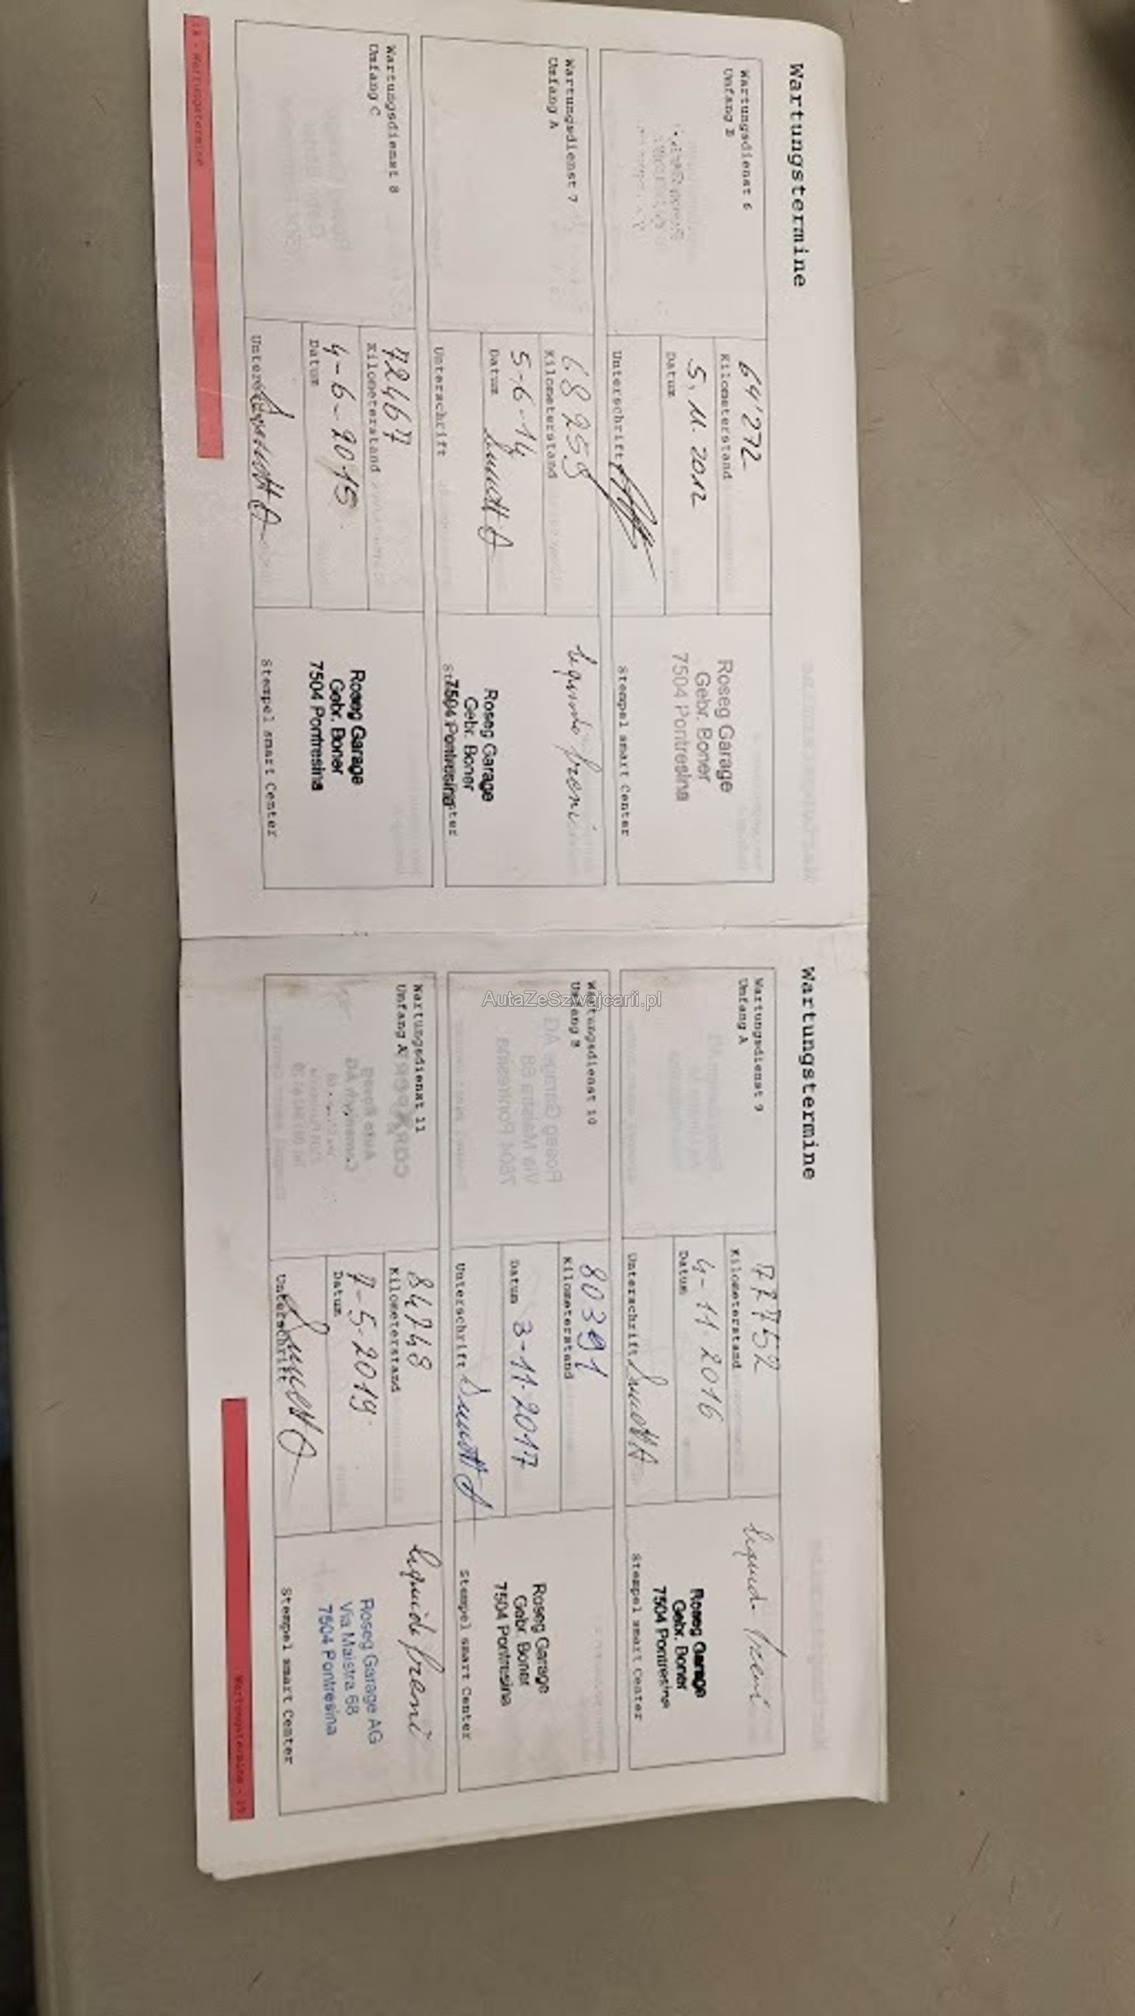 Wartungstermine
Wartungsdienst 6
Umfang B
64'272
Kilometerstand
5.11.2012
Datum
Unterschrift
Roseg Garage
Gebr. Boner
7504 Pontresina
Stempel smart Center
Wartungsdienst 7
Umfang A
68259
Kilometerstand
5-6-14
Datum
Unterschrift
liquido freni
Roseg Garage
Gebr. Boner
7504 Pontresina
Wartungsdienst 8
Umfang C
72467
Kilometerstand
4-6-2015
Datum
Roseg Garage
Gebr. Boner
7504 Pontresina
Stempel smart Center
18 - Wartungstermine
Wartungstermine
Wartungsdienst 9
Umfang A
77752
Kilometerstand
4-11-2016
Datum
Unterschrift
liquido freni
Roseg Garage
Gebr. Boner
7504 Pontresina
Stempel smart Center
Wartungsdienst 10
Umfang B
80391
Kilometerstand
Datum 3-11-2017
Unterschrift
Roseg Garage
Gebr. Boner
7504 Pontresina
Stempel smart Center
Wartungsdienst 11
Umfang A
84748
Kilometerstand
7-5-2019
Datum
Unterschrift
liquido freni
Roseg Garage AG
Via Maistra 68
7504 Pontresina
Stempel smart Center
Wartungstermine - 19
AutaZeSzwajcarii.pl